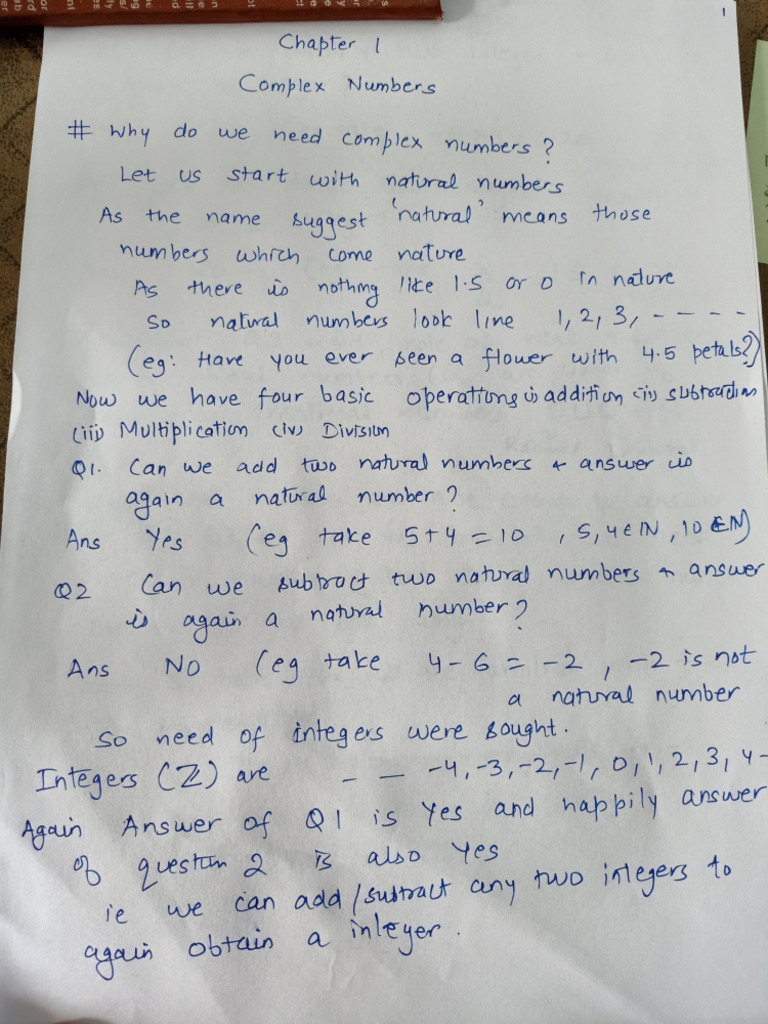 1
Chapter 1
Complex Numbers
# Why do we need complex numbers?
Let us start with natural numbers
As the name suggest 'natural' means those
numbers which come nature
As there is nothing like 1.5 or 0 in nature
So natural numbers look line 1, 2, 3, - - - -
(eg: Have you ever seen a flower with 4.5 petals?)
Now we have four basic operations (i) addition (ii) subtraction
(iii) Multiplication (iv) Division
Q1. Can we add two natural numbers & answer is
again a natural number?
Ans Yes (eg take 5+4 = 10 , 5, 4 ∈ IN, 10 ∈ IN)
Q2 Can we subtract two natural numbers & answer
is again a natural number?
Ans NO (eg take 4 - 6 = -2 , -2 is not
a natural number
So need of integers were sought.
Integers (ℤ) are - - -4, -3, -2, -1, 0, 1, 2, 3, 4 -
Again Answer of Q1 is Yes and happily answer
of question 2 is also Yes
ie we can add/sustract any two integers to
again obtain a integer.